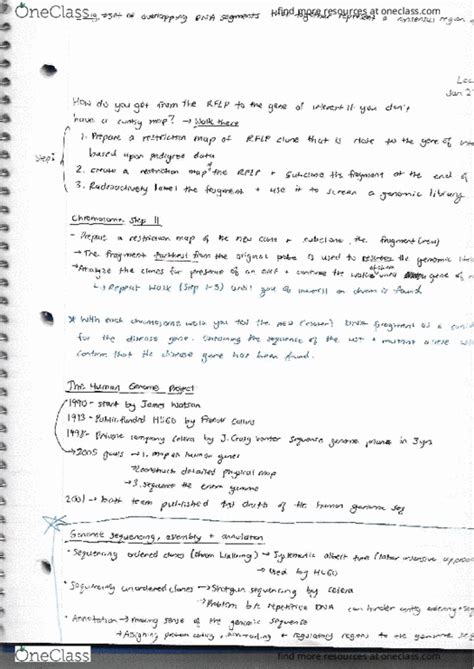 OneClass
find more resources at oneclass.com
of overlapping DNA segments that together represent a consensus region of
Lec
Jan 2
How do you get from the RFLP to the gene of interest if you don't
have a contig map? → Walk there
1. Prepare a restriction map of RFLP clone that is close to the gene of inte
based upon pedigree data
Step I
2. create a restriction map of the RFLP + subclone its fragment at the end of
3. Radioactively label the fragment + use it to screen a genomic library
Chromosome Step II
- Prepare a restriction map of the new clone + subclone the fragment (new)
→ The fragment furthest from the original probe is used to rescreen the genomic
- Analyze the clones for presence of an RFLP + continue the walk until gene of
↳ Repeat Walk (Step 1-3) until gene of interest on chrom is found
* With each chromosome walk you test the new (cloned) DNA fragment as a candi
for the disease gene. Obtaining the sequence of the WT + mutant allele will
confirm that the disease gene has been found.
The Human Genome Project
1990 - start by James Watson
1993 - Public-funded HUGO by Francis Collins
1998 - Private company Celera by J. Craig Venter sequence genome in 3 yrs
→ 2005 goals → 1. map all human genes
2. construct detailed physical map
→ 3. sequence the entire genome
2001 → both team published 1st drafts of the human genome seq
Genome sequencing, assembly + annotation
• Sequencing ordered clones (chrom walking) → systematic
→ used by HUGO
• Sequencing unordered clones → Shotgun sequencing by Celera
→ Problem b/c repetitive DNA can hinder contig ordering
• Annotation → making sense of the genomic sequence
→ Assigning protein coding, non-coding + regulatory regions to the genome
OneClass
find more resources at oneclass.com